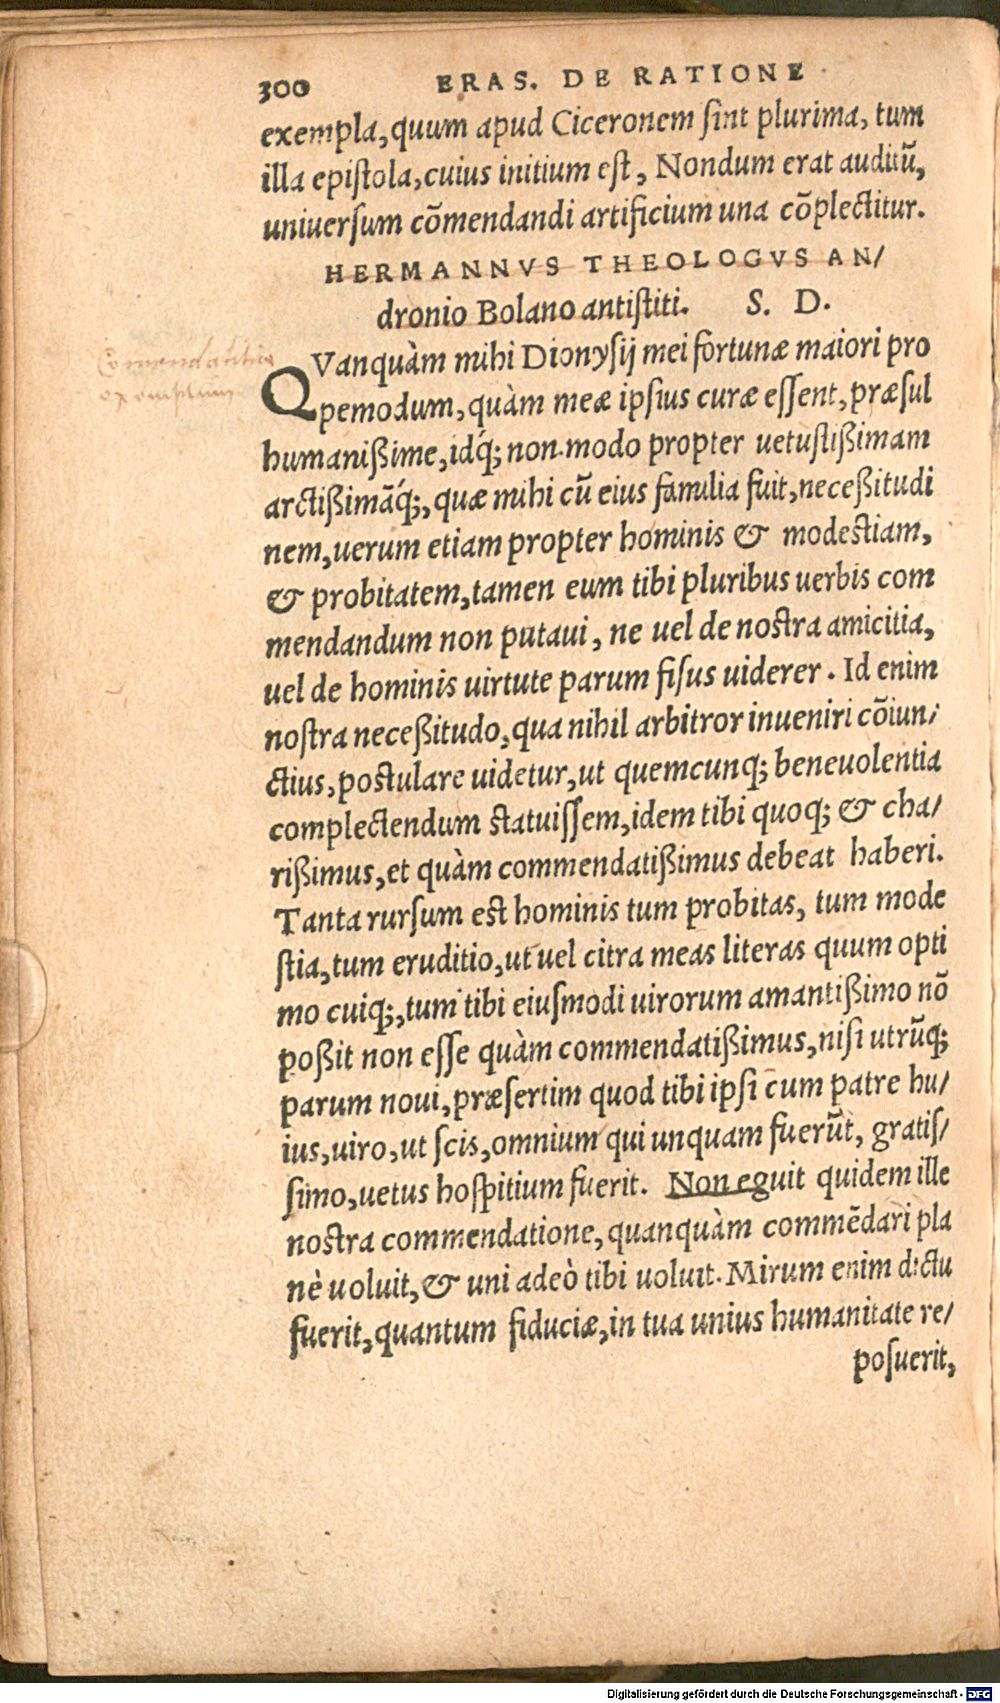 300 ERAS. DE RATIONE
exempla, quum apud Ciceronem sint plurima, tum
illa epistola, cuius initium est, Nondum erat auditū,
uniuersum cōmendandi artificium una cōplectitur.
HERMANNVS THEOLOGVS AN/
dronio Bolano antistiti. S. D.
QVanquàm mihi Dionysij mei fortunæ maiori pro
pemodum, quàm meæ ipsius curæ essent, præsul
humanißime, idq́; non modo propter uetustißimam
arctißimāq́;, quæ mihi cū eius familia fuit, neceßitudi
nem, uerum etiam propter hominis & modestiam,
& probitatem, tamen eum tibi pluribus uerbis com
mendandum non putaui, ne uel de nostra amicitia,
uel de hominis uirtute parum fisus uiderer. Id enim
nostra neceßitudo, qua nihil arbitror inueniri cōiun/
ctius, postulare uidetur, ut quemcunq; beneuolentia
complectendum statuissem, idem tibi quoq; & cha/
rißimus, et quàm commendatißimus debeat haberi.
Tanta rursum est hominis tum probitas, tum mode
stia, tum eruditio, ut uel citra meas literas quum opti
mo cuiq;, tum tibi eiusmodi uirorum amantißimo nō
poßit non esse quàm commendatißimus, nisi utrūq;
parum noui, præsertim quod tibi ipsi cum patre hu/
ius, uiro, ut scis, omnium qui unquam fuerūt, gratis/
simo, uetus hospitium fuerit. Non eguit quidem ille
nostra commendatione, quanquàm commēdari pla
nè uoluit, & uni adeò tibi uoluit. Mirum enim dictu
fuerit, quantum fiduciæ, in tua unius humanitate re/
posuerit,
Comendatitiae
exemplum
Digitalisierung gefördert durch die Deutsche Forschungsgemeinschaft - DFG